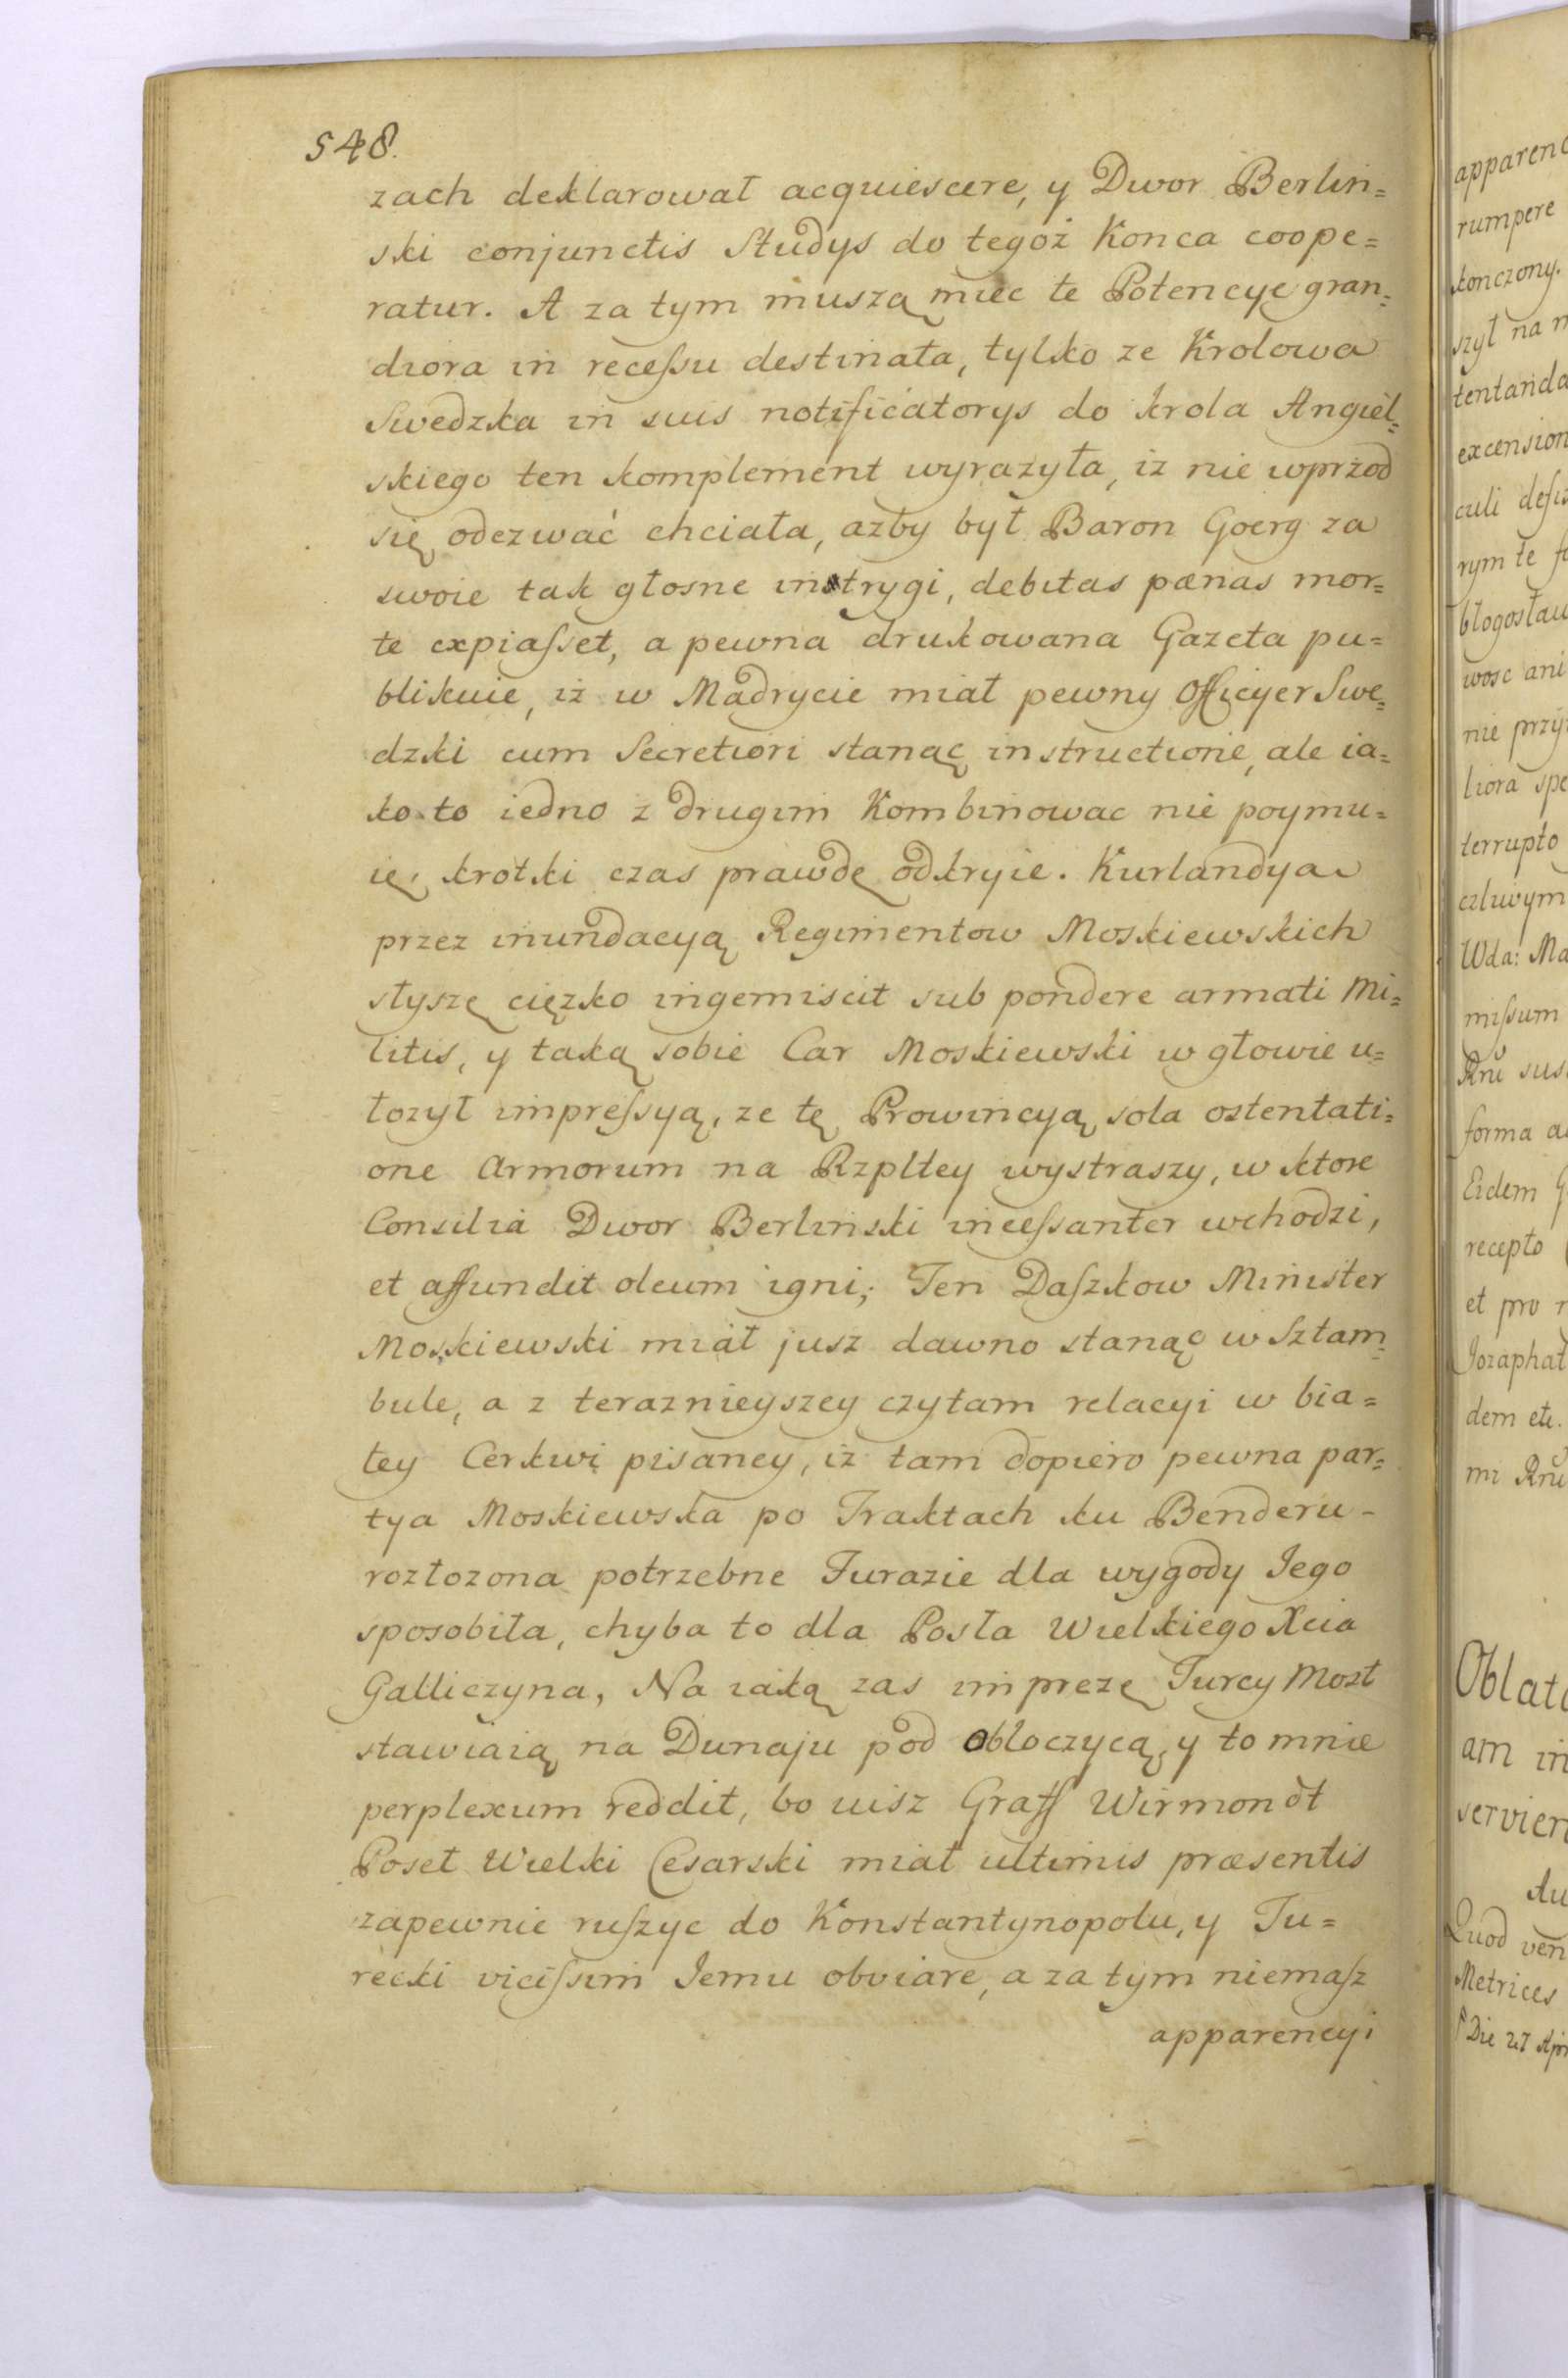 548.
zach deklarował acquiescere, y Dwor Berlin=
ski conjunctis Studys do tegoż Konca coope=
ratur. A za tym muszą miec te Potencye gran=
diora in recessu destinata, tylko ze Krolowa
Swedzka in suis notificatorys do krola Angiel=
skiego ten komplement wyrazyła, iz nie wprzod
się odezwać chciała, azby był Baron Goerg za
swoie tak głosne intrygi, debitas pænas mor=
te expiasset, a pewna drukowana Gazeta pu=
blikuie, iż w Madrycie miał pewny Officyer Swe=
dzki cum Secretiori stanąc instructione, ale ia=
ko to iedno z drugim Kombinowac nie poymu=
ię, krotki czas prawdę odkryie. Kurlandya
przez inundacyą Regimentow Moskiewskich
słyszę cięzko ingemiscit sub pondere armati Mi=
litis, y taką sobie Car Moskiewski w głowie u=
łozył impressyą, ze tę Prowincyą sola ostentati=
one Armorum na Rzpltey wystraszy, w ktore
Consilia Dwor Berlinski incessanter wchodzi,
et affundit oleum igni; Ten Daszkow Minister
Moskiewski miał jusz dawno stanąc w Sztam=
bule, a z teraznieyszey czytam relacyi w bia=
łey Cerkwi pisaney, iz tam dopiero pewna par=
tya Moskiewska po Traktach ku Benderu
rozłozona potrzebne Furazie dla wygody Jego
sposobiła, chyba to dla Posła Wielkiego Xcia
Galliczyna, Na iaką zas imprezę Turcy Most
stawiaią na Dunaju pod Obloczycą, y to mnie
perplexum reddit, bo uisz Graff Wirmondt
Poseł Wielki Cesarski miał ultimis præsentis
zapewnie ruszyc do Konstantynopolu, y Tu=
recki vicissim Jemu obviare, a za tym niemasz
apparencyi
rumpere
konczony.
culi
rym te
wosc ani
terrupto
czliwym
Wda:
missum
forma
Eidem
recepto
et pro
Jozaphat
dem etc.
am in
Quod
Metrices
Die 27